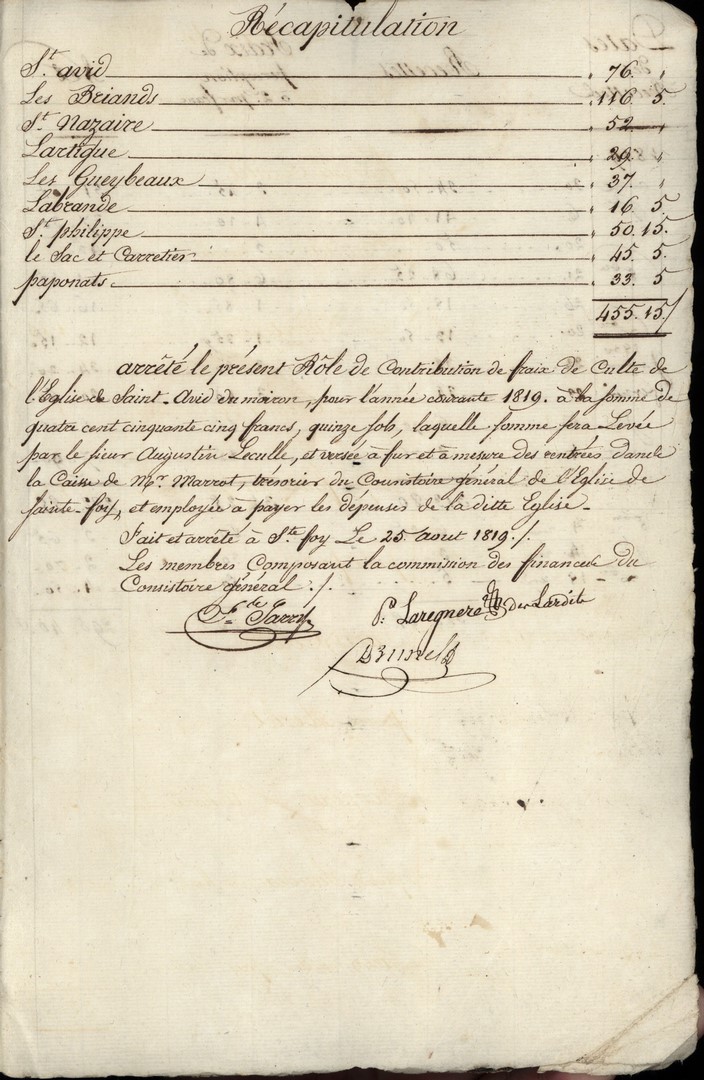 Récapitulation
St. avid 76. "
Les Briands 116. 5.
St. Nazaire 52. "
Lartigue 29. "
Les Gueybeaux 37. "
Labrande 16. 5
St. philippe 50. 15.
le Sac et Carretier 45. 5.
paponats. 33. 5
455. 15./
arrêté le présent Rôle de Contribution de fraix de Culte de
l'Eglise de Saint-Avid du moiron, pour l'année courante 1819. à la somme de
quatre cent cinquante cinq francs, quinze sols, laquelle somme sera Levée
par le sieur Augustin Leculle, et versée à fur et à mesure des rentrées dans
la Caisse de Mr. Marrot, trésorier du Consistoire général de l'Eglise de
sainte-foy, et employée à payer les dépenses de la ditte Eglise.
Fait et arrêté à Ste foy Le 25 aout 1819./.
Les membres Composant la commission des finances du
Consistoire général ./.
Jarry
Pr. Laregnere